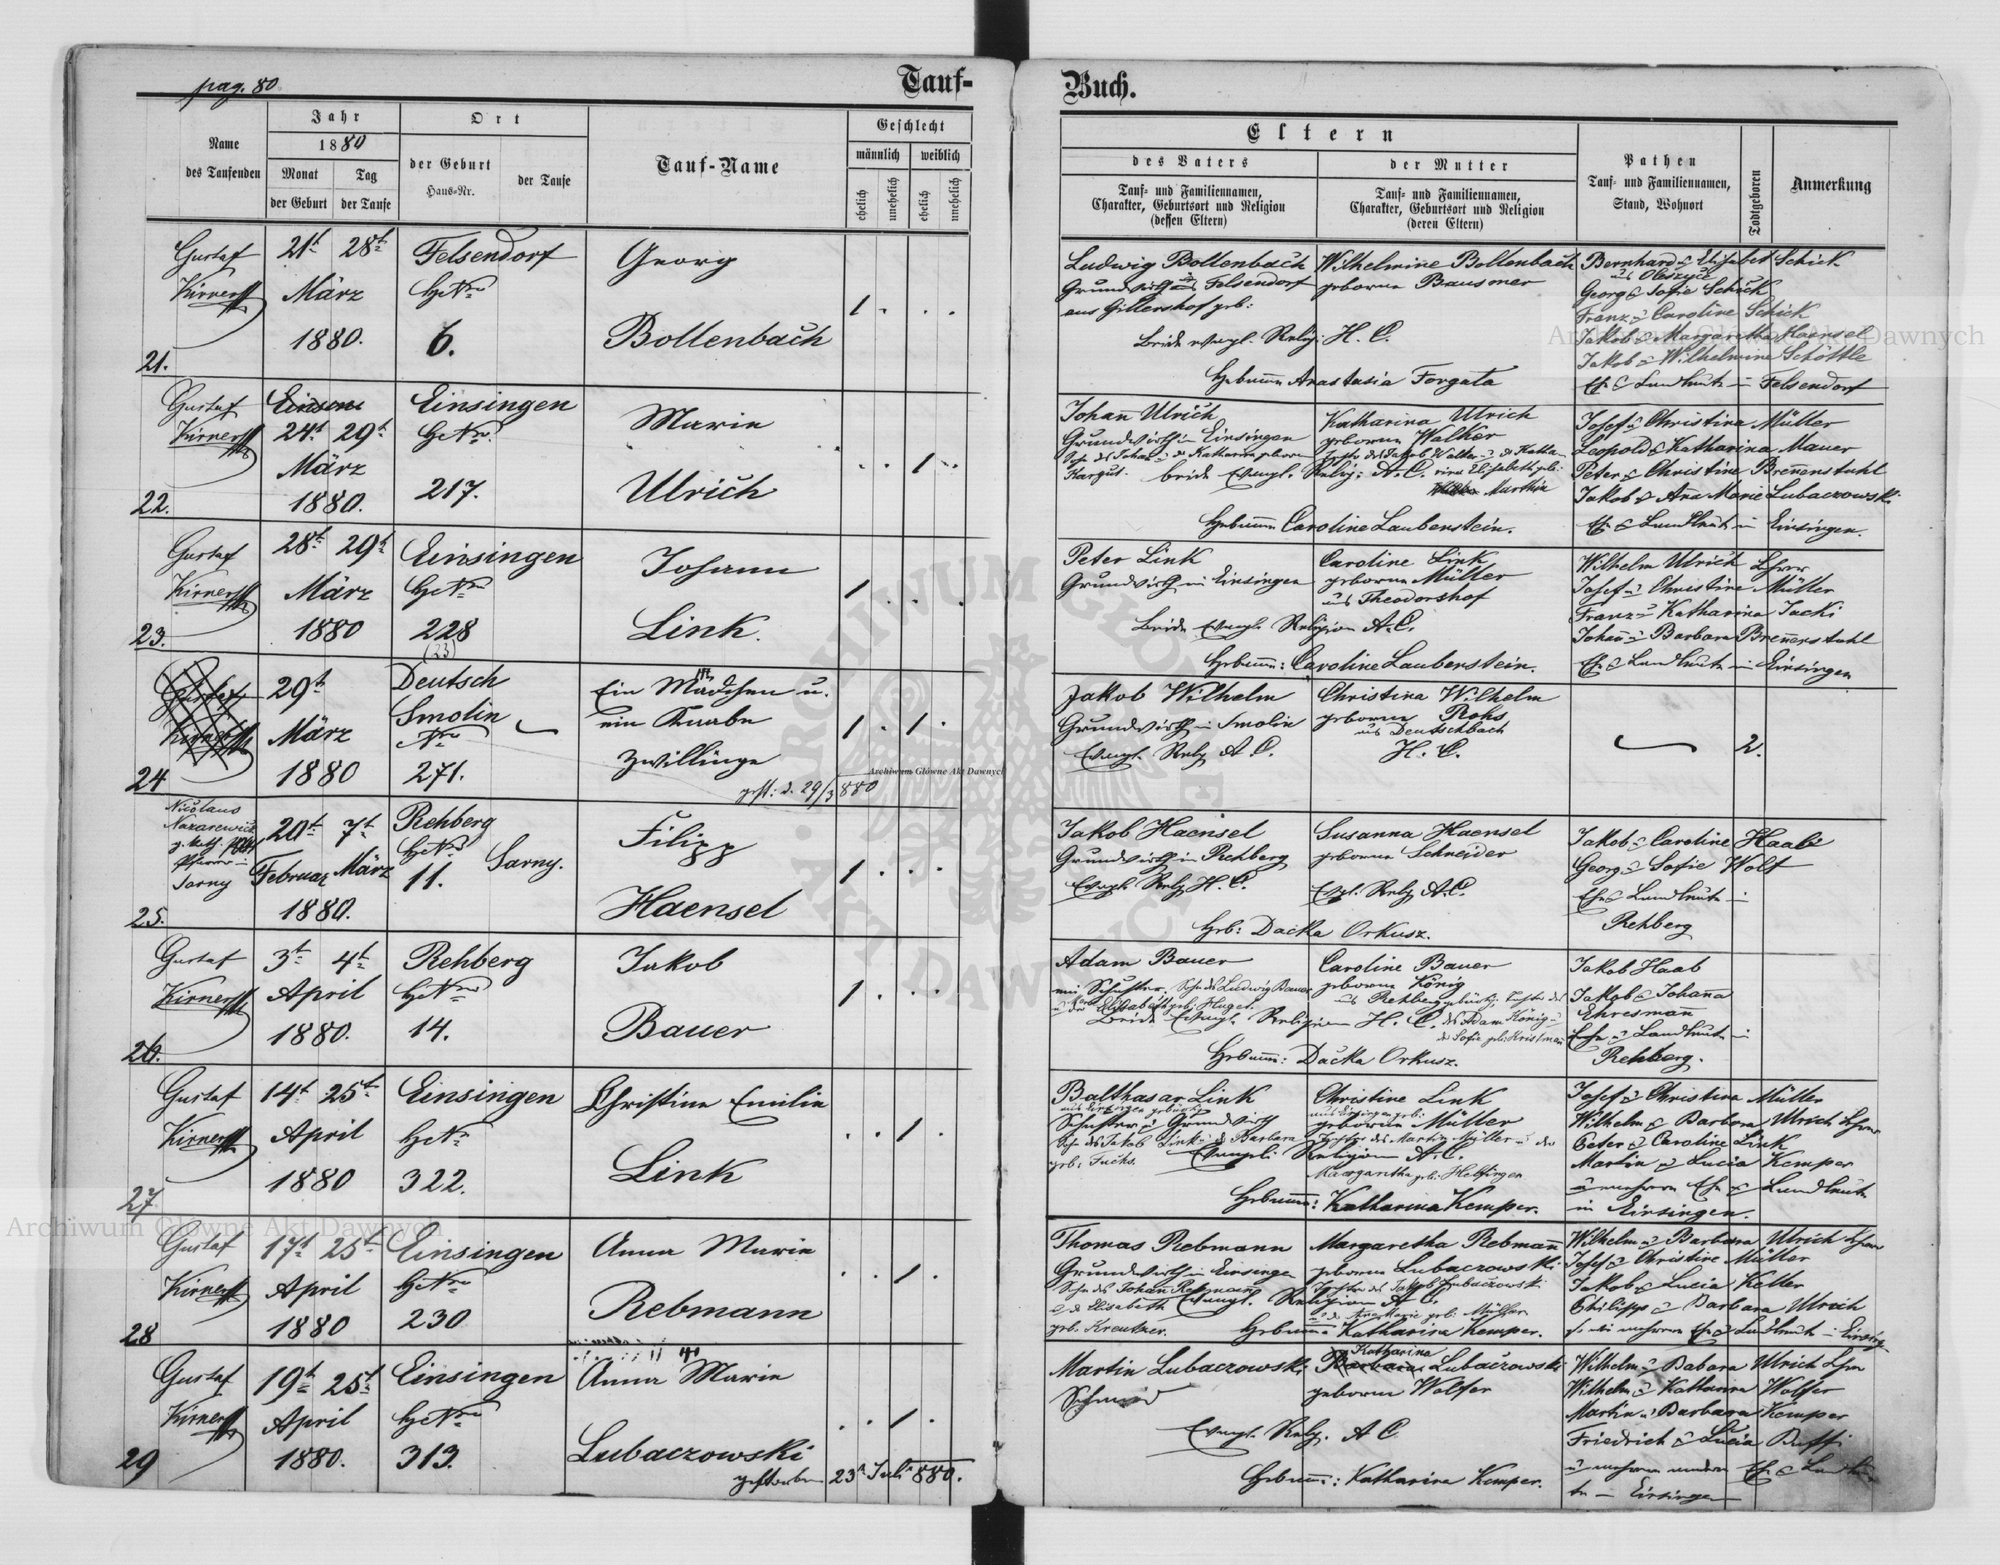 pag. 80
Tauf-
Buch.
Name
des Taufenden
Jahr
1880
Monat
der Geburt
Tag
der Taufe
Ort
der Geburt
Haus-Nr.
der Taufe
Tauf-Name
Geschlecht
männlich
weiblich
ehelich
unehelich
ehelich
unehelich
Eltern
des Vaters
Tauf- und Familiennamen,
Charakter, Geburtsort und Religion
(dessen Eltern)
der Mutter
Tauf- und Familiennamen,
Charakter, Geburtsort und Religion
(deren Eltern)
Pathen
Tauf- und Familiennamen,
Stand, Wohnort
Todtgeboren
Anmerkung
21.
Gustaf
21t 28t
März
1880.
Felsendorf
HsNro
6.
Georg
Bollenbach
1
Ludwig Bollenbach
Grundwirth in Felsendorf
aus Gillershof geb:
Wilhelmine Bollenbach
geborne Bausmer
Beide evngl. Relig: H. C.
Hebamme Anastasia Forgata
Bernhard u Elisabet Schick
aus Oleszyce
Georg & Sofie Schick
Franz u Caroline Schick
Jakob u Margaretha Haensel
Jakob u Wilhelmine Schöttle
Ehe & Landleute in Felsendorf
22.
Gustaf
24t 29t
März
1880.
Einsingen
HsNro
217.
Marie
Ulrich
1
Johan Ulrich
Grundwirth in Einsingen
Katharina Ulrich
geborne Walker
beide Evngl. Relig: A.C.
Hebamme Caroline Laubenstein.
Josef u Christina Müller
Leopold & Katharina Mauer
Peter & Christine Brennenstuhl
Jakob & Ana Marie Lubaczowski
Ehe & Landleute in Einsingen.
23.
Gustaf
28t 29t
März
1880
Einsingen
HsNro
228
(33)
Johann
Link.
1
Peter Link
Grundwirth in Einsingen
Caroline Link
geborne Müller
aus Theodorshof
beide Evngl. Religion A.C.
Hebamme: Caroline Laubenstein.
Wilhelm Ulrich Lehrer
Josef u Christine Müller
Franz u Katharina Jacki
Johan u Barbara Brennenstuhl
Ehe & Landleute in Einsingen
24
29t
März
1880
Deutsch
Smolin
Nro
271.
Ein Mädchen u.
ein Knabe
Zwillinge
gest: d. 29/3 880
1 . 1 .
Jakob Wilhelm
Grundwirth in Smolin
Evngl. Relig A.C.
Christina Wilhelm
geborne Rohs
aus Deutschbach
H. C.
2.
25.
Nicolaus
Nazarewicz
Pfarrer in
Sarny
20t 7t
Februar März
1880.
Rehberg
HsNro
11.
Sarny.
Filipp
Haensel
1
Jakob Haensel
Grundwirth in Rehberg
Evngl. Relig H. C.
Susanna Haensel
geborne Schneider
Evgl. Relig A.C.
Heb: Dacka Orkusz.
Jakob u Caroline Haab
Georg u Sofie Wolf
Ehe & Landleute in
Rehberg
26.
Gustaf
3t 4t
April
1880.
Rehberg
HsNro
14.
Jakob
Bauer
1
Adam Bauer
Caroline Bauer
geborne König
Beide Evngl. Religion H. C.
Hebamme: Dacka Orkusz.
Jakob Haab
Jakob & Johanna
Ehresmann
Ehe u Landleute in
Rehberg.
27.
Gustaf
14t 25t
April
1880
Einsingen
HsNro
322.
Christine Emilie
Link
1
Balthasar Link
Schuster u Grundwirth
Sohn des Jakob Link u Barbara
geb. Fuchs.
Christine Link
geborne Müller
Tochter des Martin Müller u der
Evangl. Religion A.C.
Margaretha geb: Hessinger
Hebamme: Katharina Kemper.
Josef u Christina Müller
Wilhelm & Barbara Ulrich Lehrer
Peter u Caroline Link
Martin u Lucia Kemper
u mehrere Ehe & Landleute
in Einsingen.
28
Gustaf
17t 25t
April
1880
Einsingen
HsNro
230
Anna Marie
Rebmann
1
Thomas Rebmann
Grundwirth in Einsingen
Sohn des Johan Rebmann
& d Elisabeth
geb. Kreutzer.
Margaretha Rebmann
geborne Lubaczowski
Tochter des Jakob Lubaczowski
Evngl. Religion A.C.
u d. Anna Marie geb: Müller
Hebamme Katharina Kemper.
Wilhelm u Barbara Ulrich Lehrer
Josef u Christine Müller
Jakob & Lucia Keller
Philipp u Barbara Ulrich
29
Gustaf
19t 25t
April
1880.
Einsingen
HsNro
313.
Anna Marie
Lubaczowski
gestorben 23t Juli 880.
1
Martin Lubaczowski
Schmied
Katharina
Barbara Lubaczowski
geborne Wolfer
Evngl. Relig. A C.
Hebamme: Katharina Kemper.
Wilhelm u Babara Ulrich Lehrer
Wilhelm u Katharina Wolfer
Martin u Barbara Kemper
Friedrich & Lucia Buffi
Einsingen
Archiwum Główne Akt Dawnych
Archiwum Główne Akt Dawnych
Archiwum Główne Akt Dawnych
ARCHIWUM GŁÓWNE AKT DAWNYCH